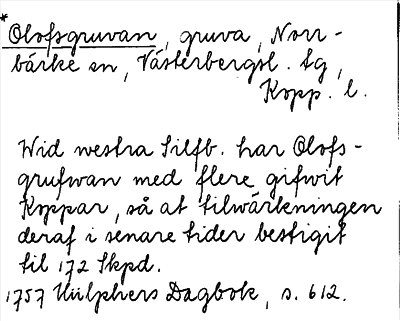 *Olofsgruvan, gruva, Norr-
bärke sn, Västerbergsl. tg,
Kopp. l.
Wid westra Silfb. har Olofs-
grufwan med flere gifwit
Koppar, så at tilwärkningen
deraf i senare tider bestigit
til 172 Skpd.
1757 Hülphers Dagbok, s. 612.